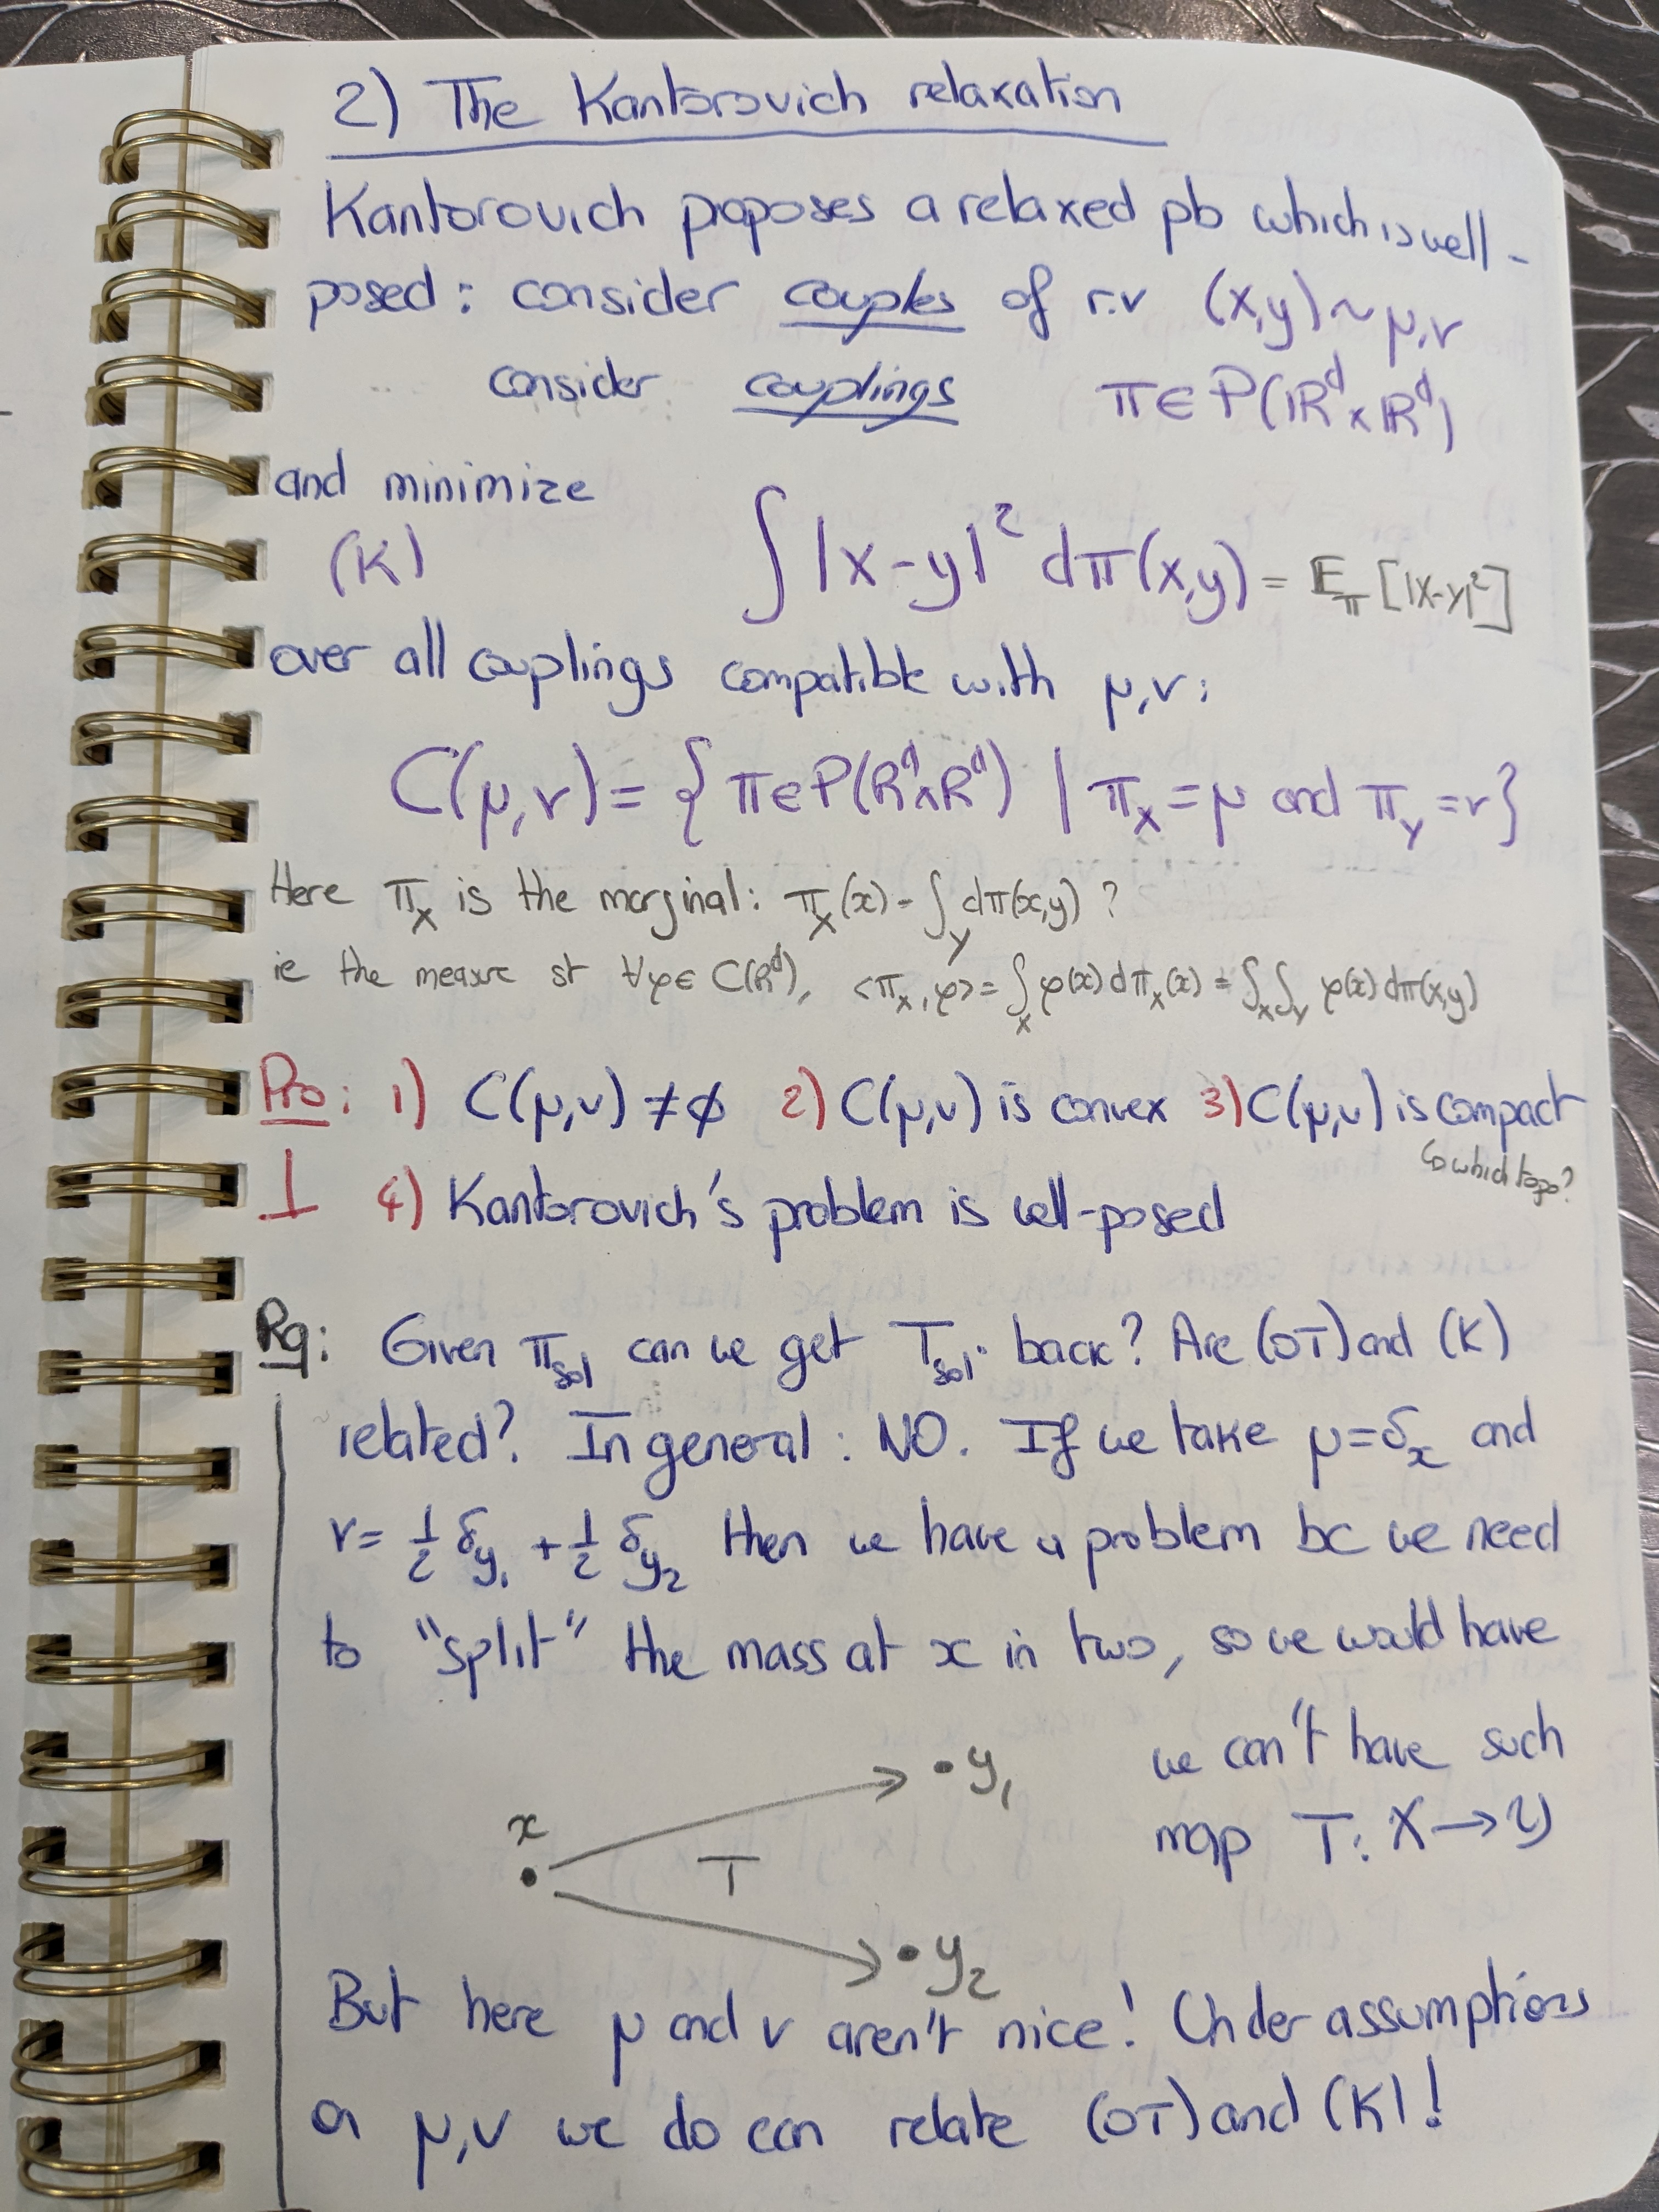 2) The Kantorovich relaxation
Kantorovich proposes a relaxed pb which is well-
posed: consider couples of r.v (x,y) ~ μ,ν
consider couplings π ∈ P(ℝᵈ × ℝᵈ)
and minimize
(K) ∫ |x-y|² dπ(x,y) = 𝔼_π [|X-Y|²]
over all couplings compatible with μ,ν:
C(μ,ν) = { π ∈ P(ℝᵈ×ℝᵈ) | π_X = μ and π_Y = ν }
Here π_X is the marginal: π_X(x) = ∫_Y dπ(x,y) ?
ie the measure st ∀φ ∈ C(ℝᵈ), <π_X, φ> = ∫_X φ(x) dπ_X(x) = ∫_X ∫_Y φ(x) dπ(x,y)
Pro: 1) C(μ,ν) ≠ ∅ 2) C(μ,ν) is convex 3) C(μ,ν) is compact
↳ which topo?
4) Kantorovich's problem is well-posed
Rq: Given π_sol can we get T_sol. back? Are (OT) and (K)
related? In general: NO. If we take μ = δ_x and
ν = 1/2 δ_y₁ + 1/2 δ_y₂ then we have a problem bc we need
to "split" the mass at x in two, so we would have
x
T
y₁
y₂
we can't have such
map T: X → Y
But here μ and ν aren't nice! Under assumptions
on μ,ν we do can relate (OT) and (K)!